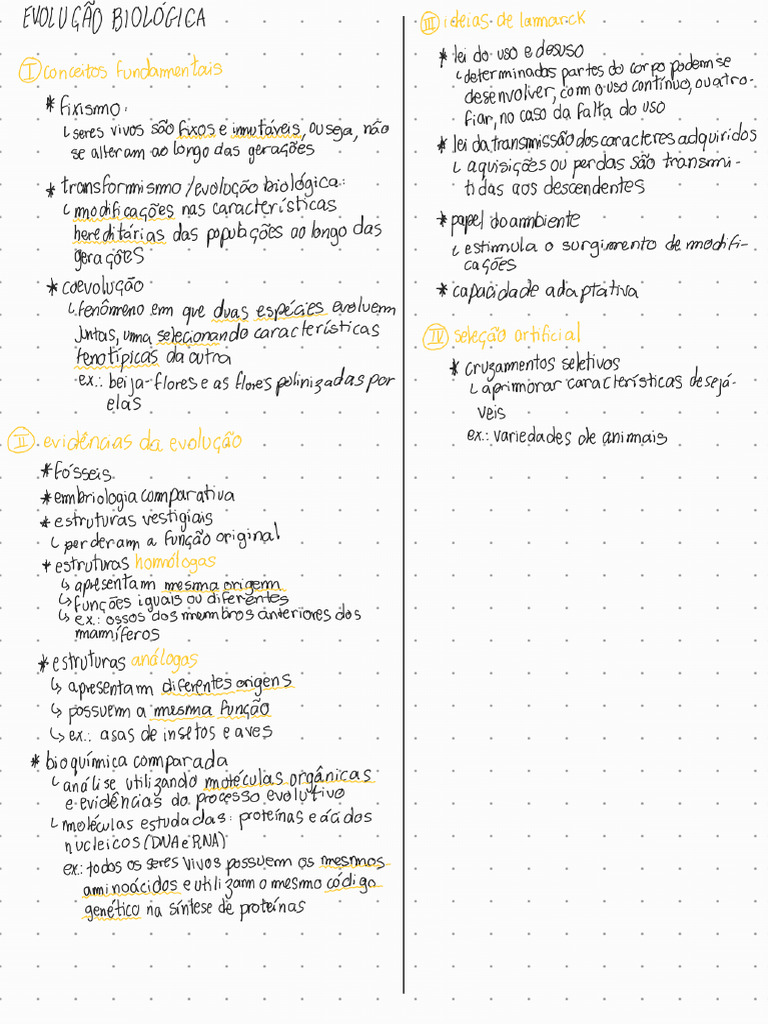 EVOLUÇÃO BIOLÓGICA
I conceitos fundamentais
* fixismo:
↳ seres vivos são fixos e imutáveis, ou seja, não
se alteram ao longo das gerações
* transformismo/evolução biológica:
↳ modificações nas características
hereditárias das populações ao longo das
gerações
* coevolução
↳ fenômeno em que duas espécies evoluem
juntas, uma selecionando características
fenotípicas da outra
ex.: beija-flores e as flores polinizadas por
elas
II evidências da evolução
* fósseis
* embriologia comparativa
* estruturas vestigiais
↳ perderam a função original
* estruturas homólogas
↳ apresentam mesma origem
↳ funções iguais ou diferentes
↳ ex.: ossos dos membros anteriores dos
mamíferos
* estruturas análogas
↳ apresentam diferentes origens
↳ possuem a mesma função
↳ ex.: asas de insetos e aves
* bioquímica comparada
↳ análise utilizando moléculas orgânicas
e evidências do processo evolutivo
↳ moléculas estudadas: proteínas e ácidos
nucleicos (DNA e RNA)
ex.: todos os seres vivos possuem os mesmos
aminoácidos e utilizam o mesmo código
genético na síntese de proteínas
III ideias de lamarck
* lei do uso e desuso
↳ determinadas partes do corpo podem se
desenvolver, com o uso contínuo, ou atro-
fiar, no caso da falta do uso
* lei da transmissão dos caracteres adquiridos
↳ aquisições ou perdas são transmi-
tidas aos descendentes
* papel do ambiente
↳ estimula o surgimento de modifi-
cações
* capacidade adaptativa
IV seleção artificial
* cruzamentos seletivos
↳ aprimorar características desejá-
veis
ex.: variedades de animais